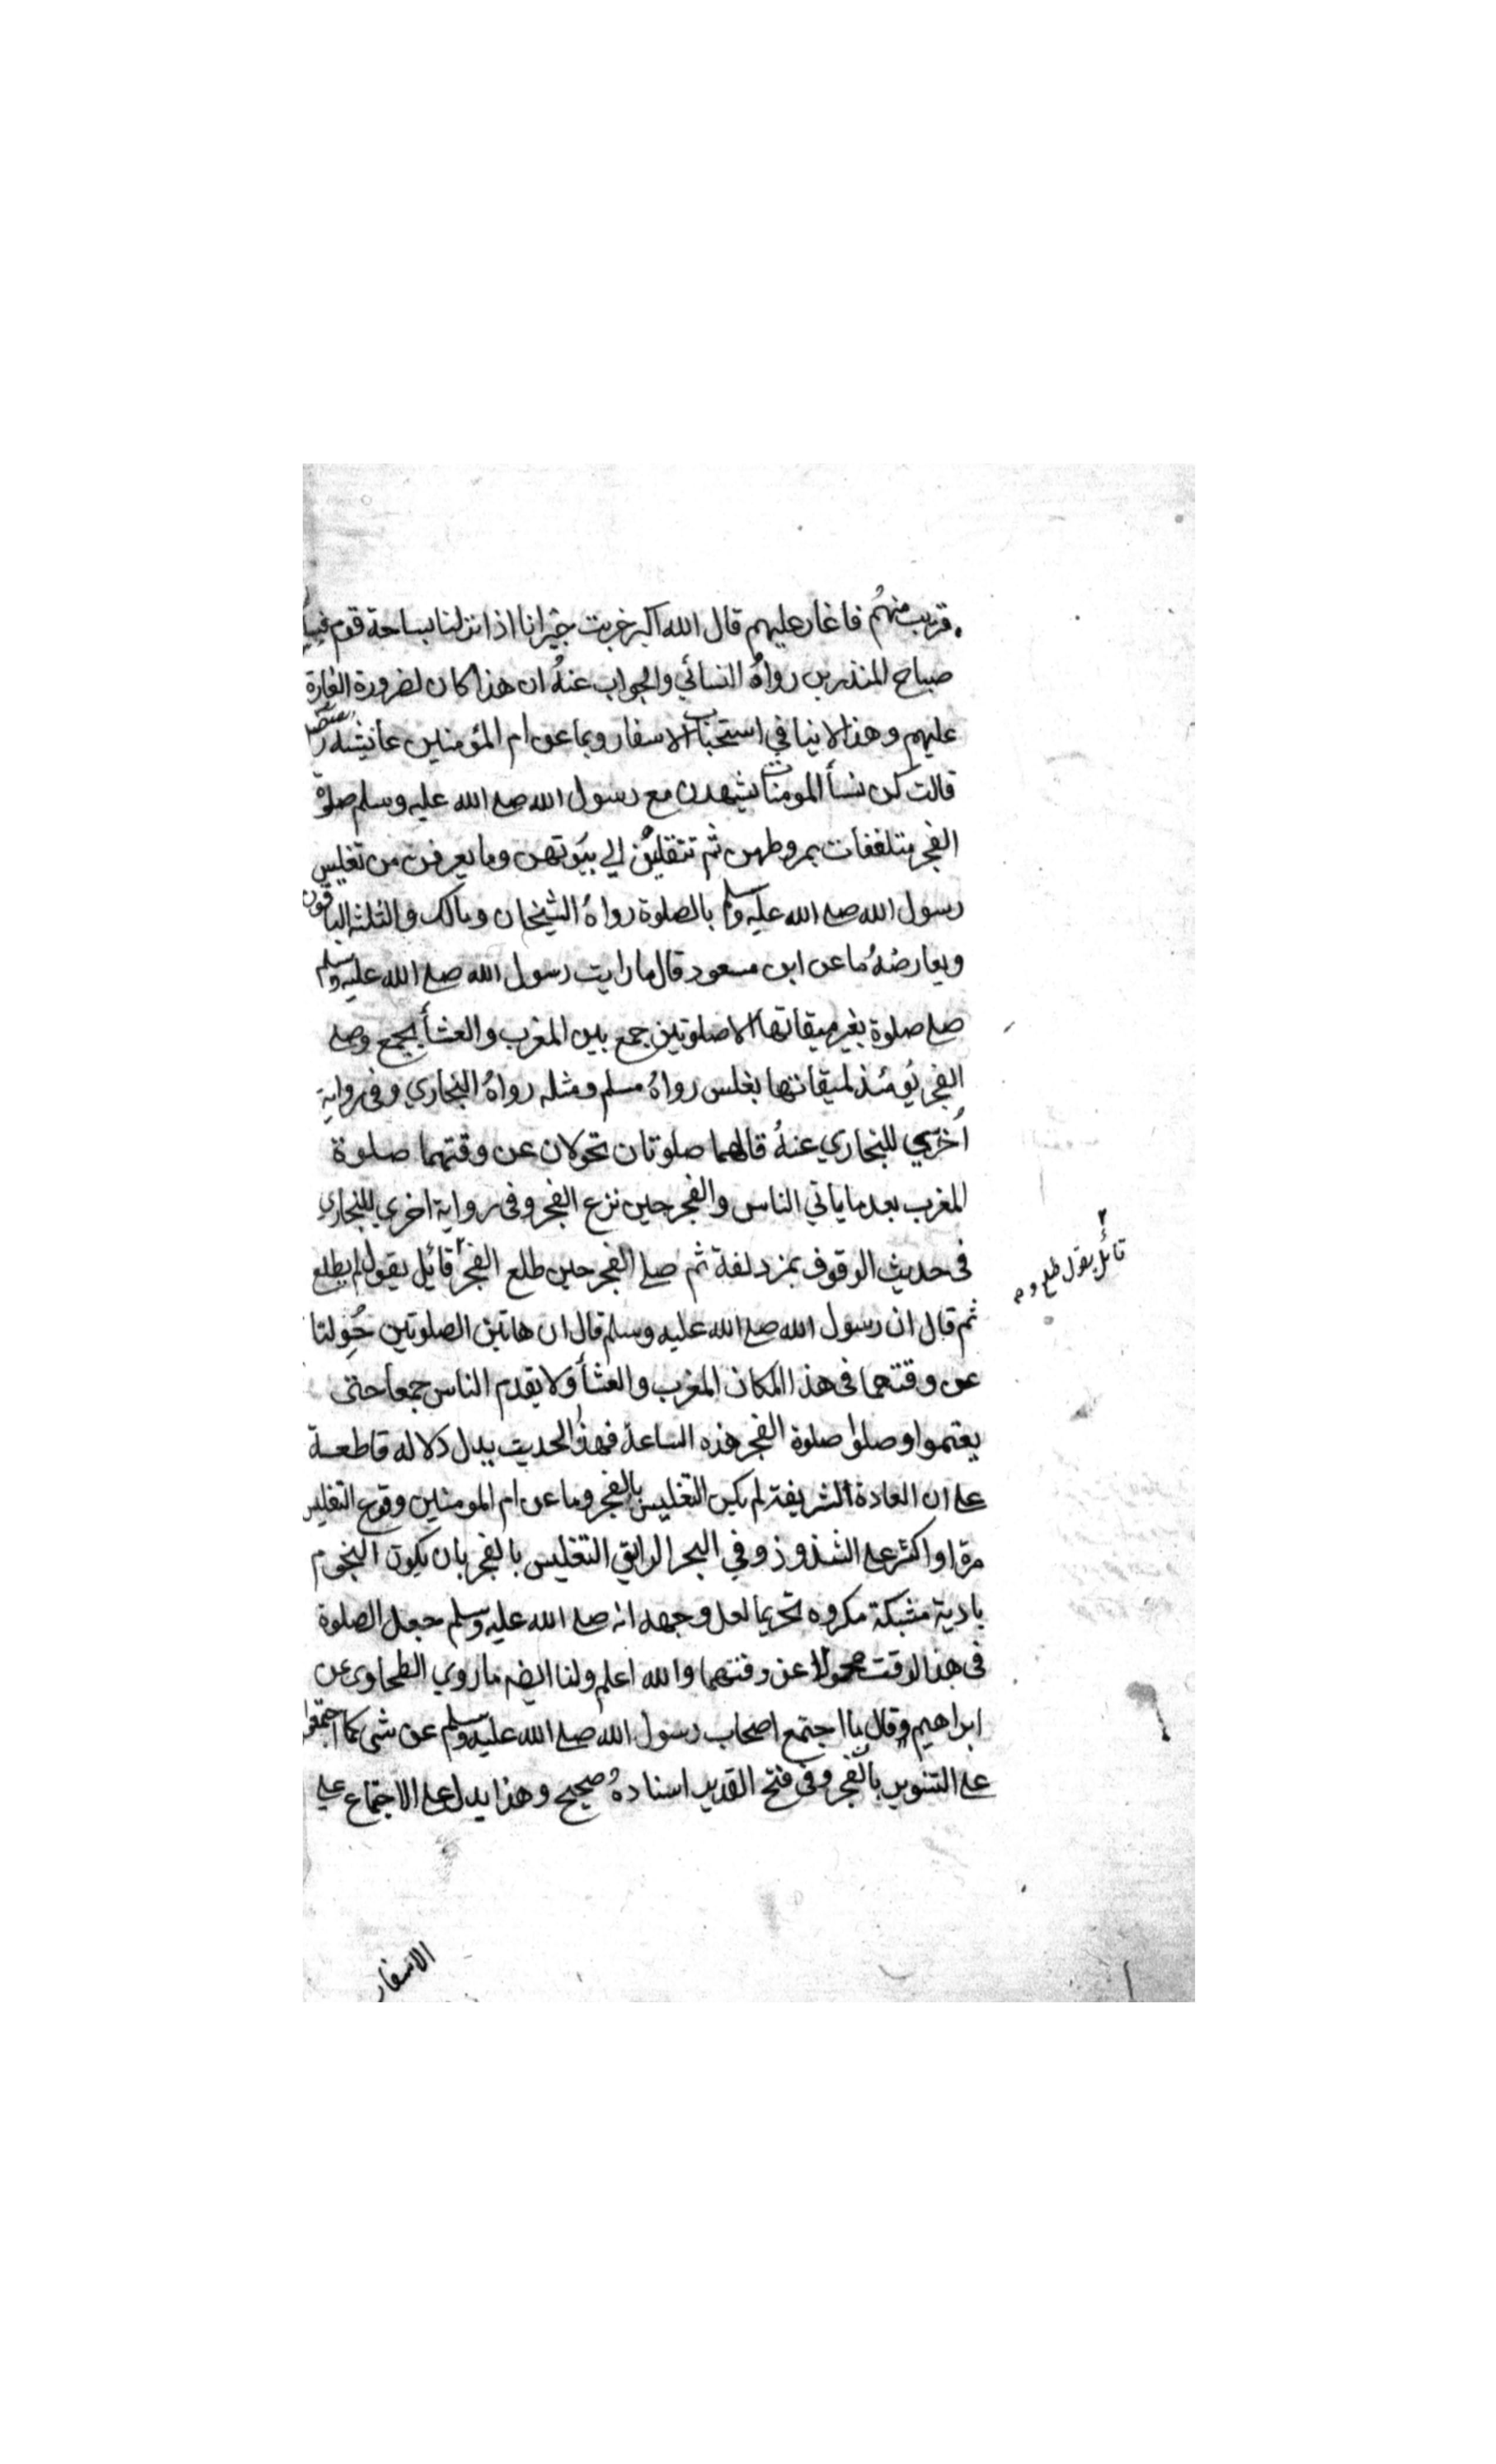 قريب منهم فاغار عليهم قال الله اكبر خربت خيبر انا اذا نزلنا بساحة قوم فسا
صباح المنذرين رواهُ النسائي والجواب عنهُ ان هذا كان لضرورة الغارة
عليهم وهذا لا ينافي استحباب الاسفار وبما عن ام المؤمنين عائيشه
قالت كن نسأ المومنات يشهدن مع رسول الله صلى الله عليه وسلم صلوة
الفجر متلففات بمروطهن ثم تنقلبن الي بيوتهن وما يعرفن من تغليس
رسول الله صلى الله عليه وسلم بالصلوة رواهُ الشيخان ومالك والثلثه الباقون
ويعارضهُ ما عن ابن مسعود قال ما رايت رسول الله صلى الله عليه وسلم
صلى صلوة بغير ميقاتها الا صلوتين جمع بين المغرب والعشأ بجمع وصلى
الفجر يومئذ لميقاتها بغلس رواهُ مسلم ومثله رواهُ البخاري وفى رواية
اُخري للبخاري عنهُ قال هما صلوتان تحولان عن وقتهما صلوة
المغرب بعد ما ياتي الناس والفجر حين نزع الفجر وفى رواية اخري للبخاري
فى حديث الوقوف بمزدلفة ثم صلى الفجر حين طلع الفجر٢ قائيل يقول لم يطلع
٢ قائل يقول طلع و
ثم قال ان رسول الله صلى الله عليه وسلم قال ان هاتين الصلوتين حُوِلتا
عن وقتهما فى هذا المكان المغرب والعشأ ولا يقدم الناس جمعا حتى
يعتموا وصلوا صلوة الفجر هذه الساعة فهذا الحديث يدل دلاله قاطعة
على ان العادة الشريفة لم يكن التغليس بالفجر وما عن ام المومنين وقوع التغليس
مرة او اكثر على الشذوذ وفي البحر الرايق التغليس بالفجر بان يكون النجوم
بادية مشبكة مكروه تحريما لعل وجهه انه صلى الله عليه وسلم جعل الصلوة
فى هذا الوقت محولا عن وقتهما والله اعلم ولنا ايضه ما روي الطحاوى عن
ابراهيم وقال ما اجتمع اصحاب رسول الله صلى الله عليه وسلم عن شى كما اجتمعوا
على التنوير بالفجر وفى فتح القدير اسنادهُ صحيح وهذا يدل على الاجتماع على
الاسفار